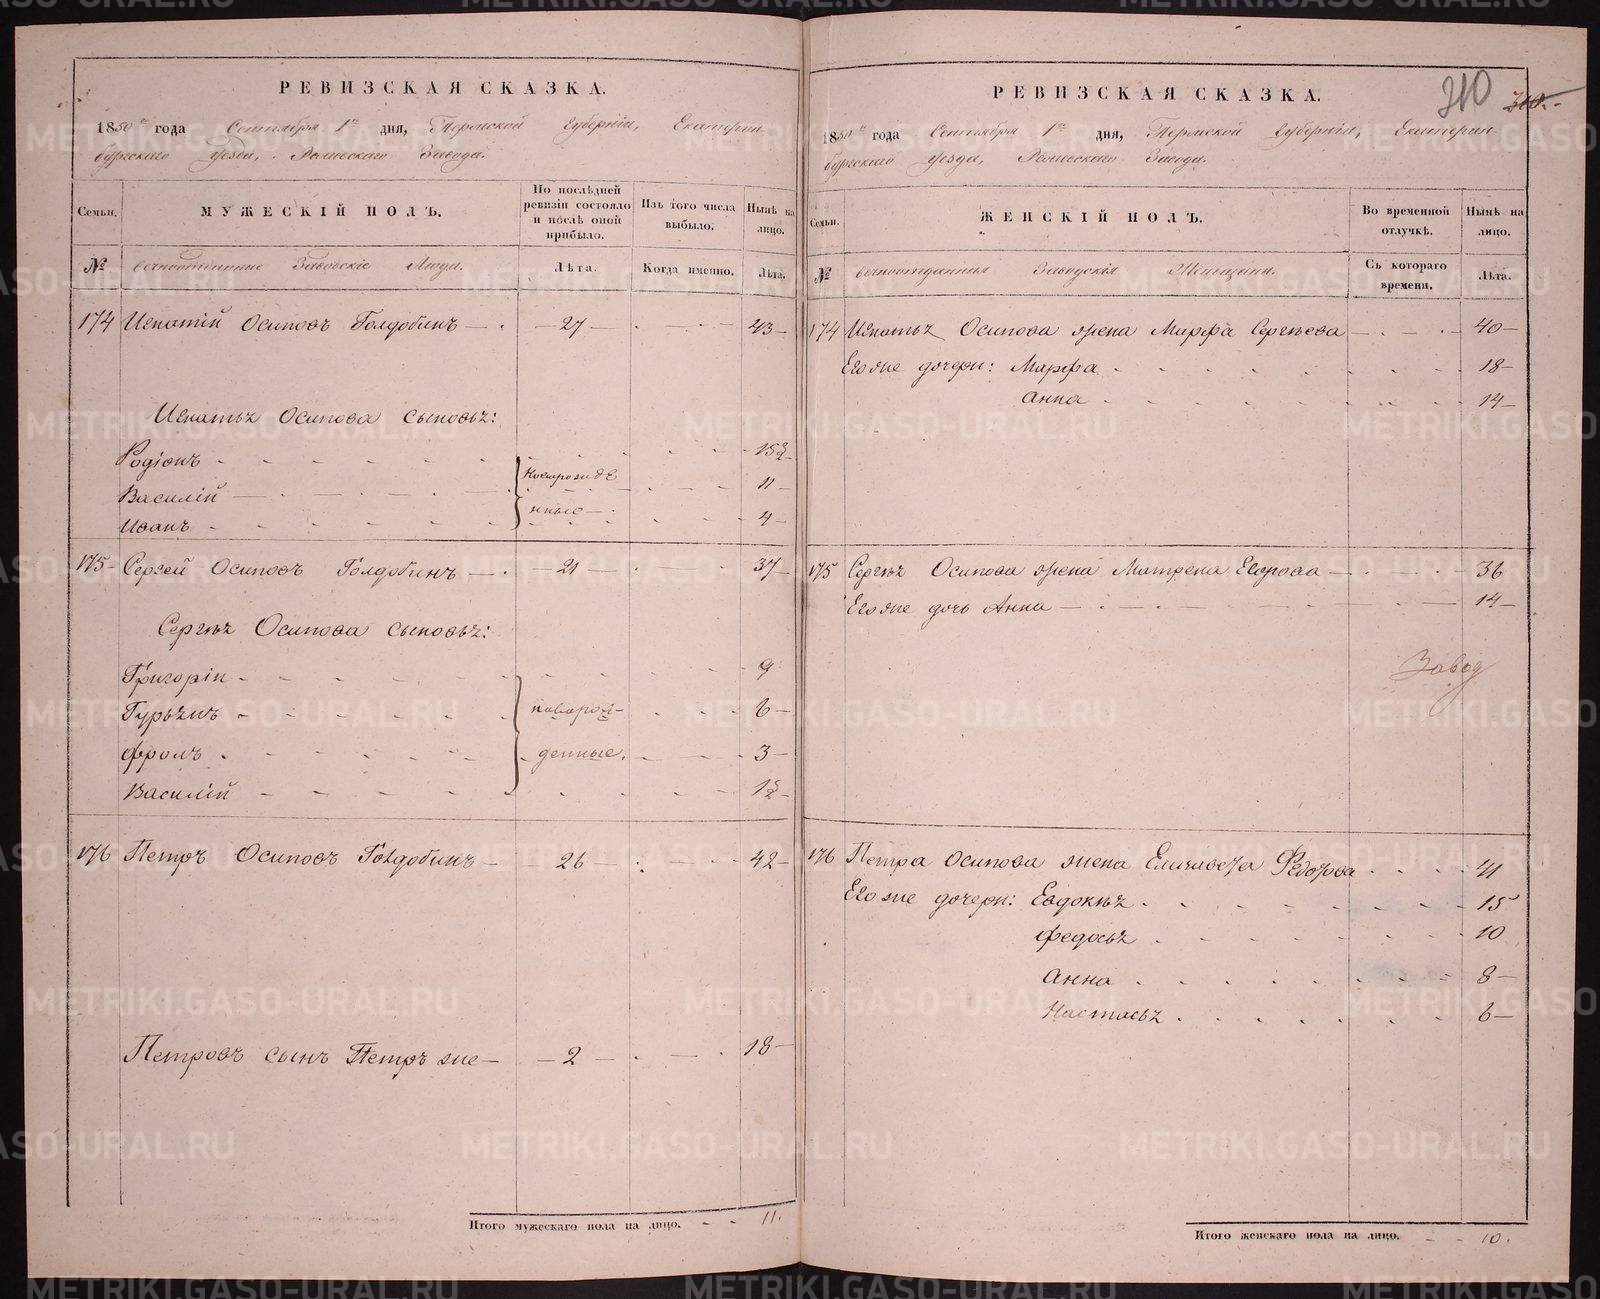 РЕВИЗСКАЯ СКАЗКА.
1850 го года Сентября 1го дня, Пермской Губерніи, Екатерин-
бургскаго уезда, Завода.
Семьи.
МУЖЕСКІЙ ПОЛЪ.
По послѣдней ревизіи состояло и послѣ оной прибыло.
Изъ того числа выбыло.
Нынѣ на лицо.
№
вечноотданные Заводскіе Люди.
Лѣта.
Когда именно.
Лѣта.
174 Игнатій Осиповъ Голдобинъ — 27 — 43
Игнатья Осипова сыновья:
Родіонъ 15½
Василій Новорожде 11
Иванъ нные 4
175 Сергей Осиповъ Голдобинъ — 21 — 37
Сергѣя Осипова сыновья:
Григорій 9
Гурьянъ новорож- 6
Фролъ денные. 3
Василій 1½
176 Петръ Осиповъ Голдобинъ — 26 — 42
Петровъ сынъ Петръ же — 2 — 18
Итого мужескаго пола на лицо. 11.
РЕВИЗСКАЯ СКАЗКА.
310 310.
1850 го года Сентября 1го дня, Пермской Губерніи, Екатерин-
бургскаго уезда, Завода.
Семьи.
ЖЕНСКІЙ ПОЛЪ.
Во временной отлучкѣ.
Нынѣ на лицо.
№
вечноотданныя Заводскія Женщины.
Съ котораго времени.
Лѣта.
174 Игнатья Осипова жена Марфа Сергѣева 40
Его же дочери: Марфа 18
Анна 14
175 Сергѣя Осипова жена Матрена Егорова 36
Его же дочь Анна 14
Завод
176 Петра Осипова жена Елизавета Федорова 41
Его же дочери: Евдокья 15
Федосья 10
Анна 8
Настасья 6
Итого женскаго пола на лицо. 10.
METRIKI.GASO-URAL.RU